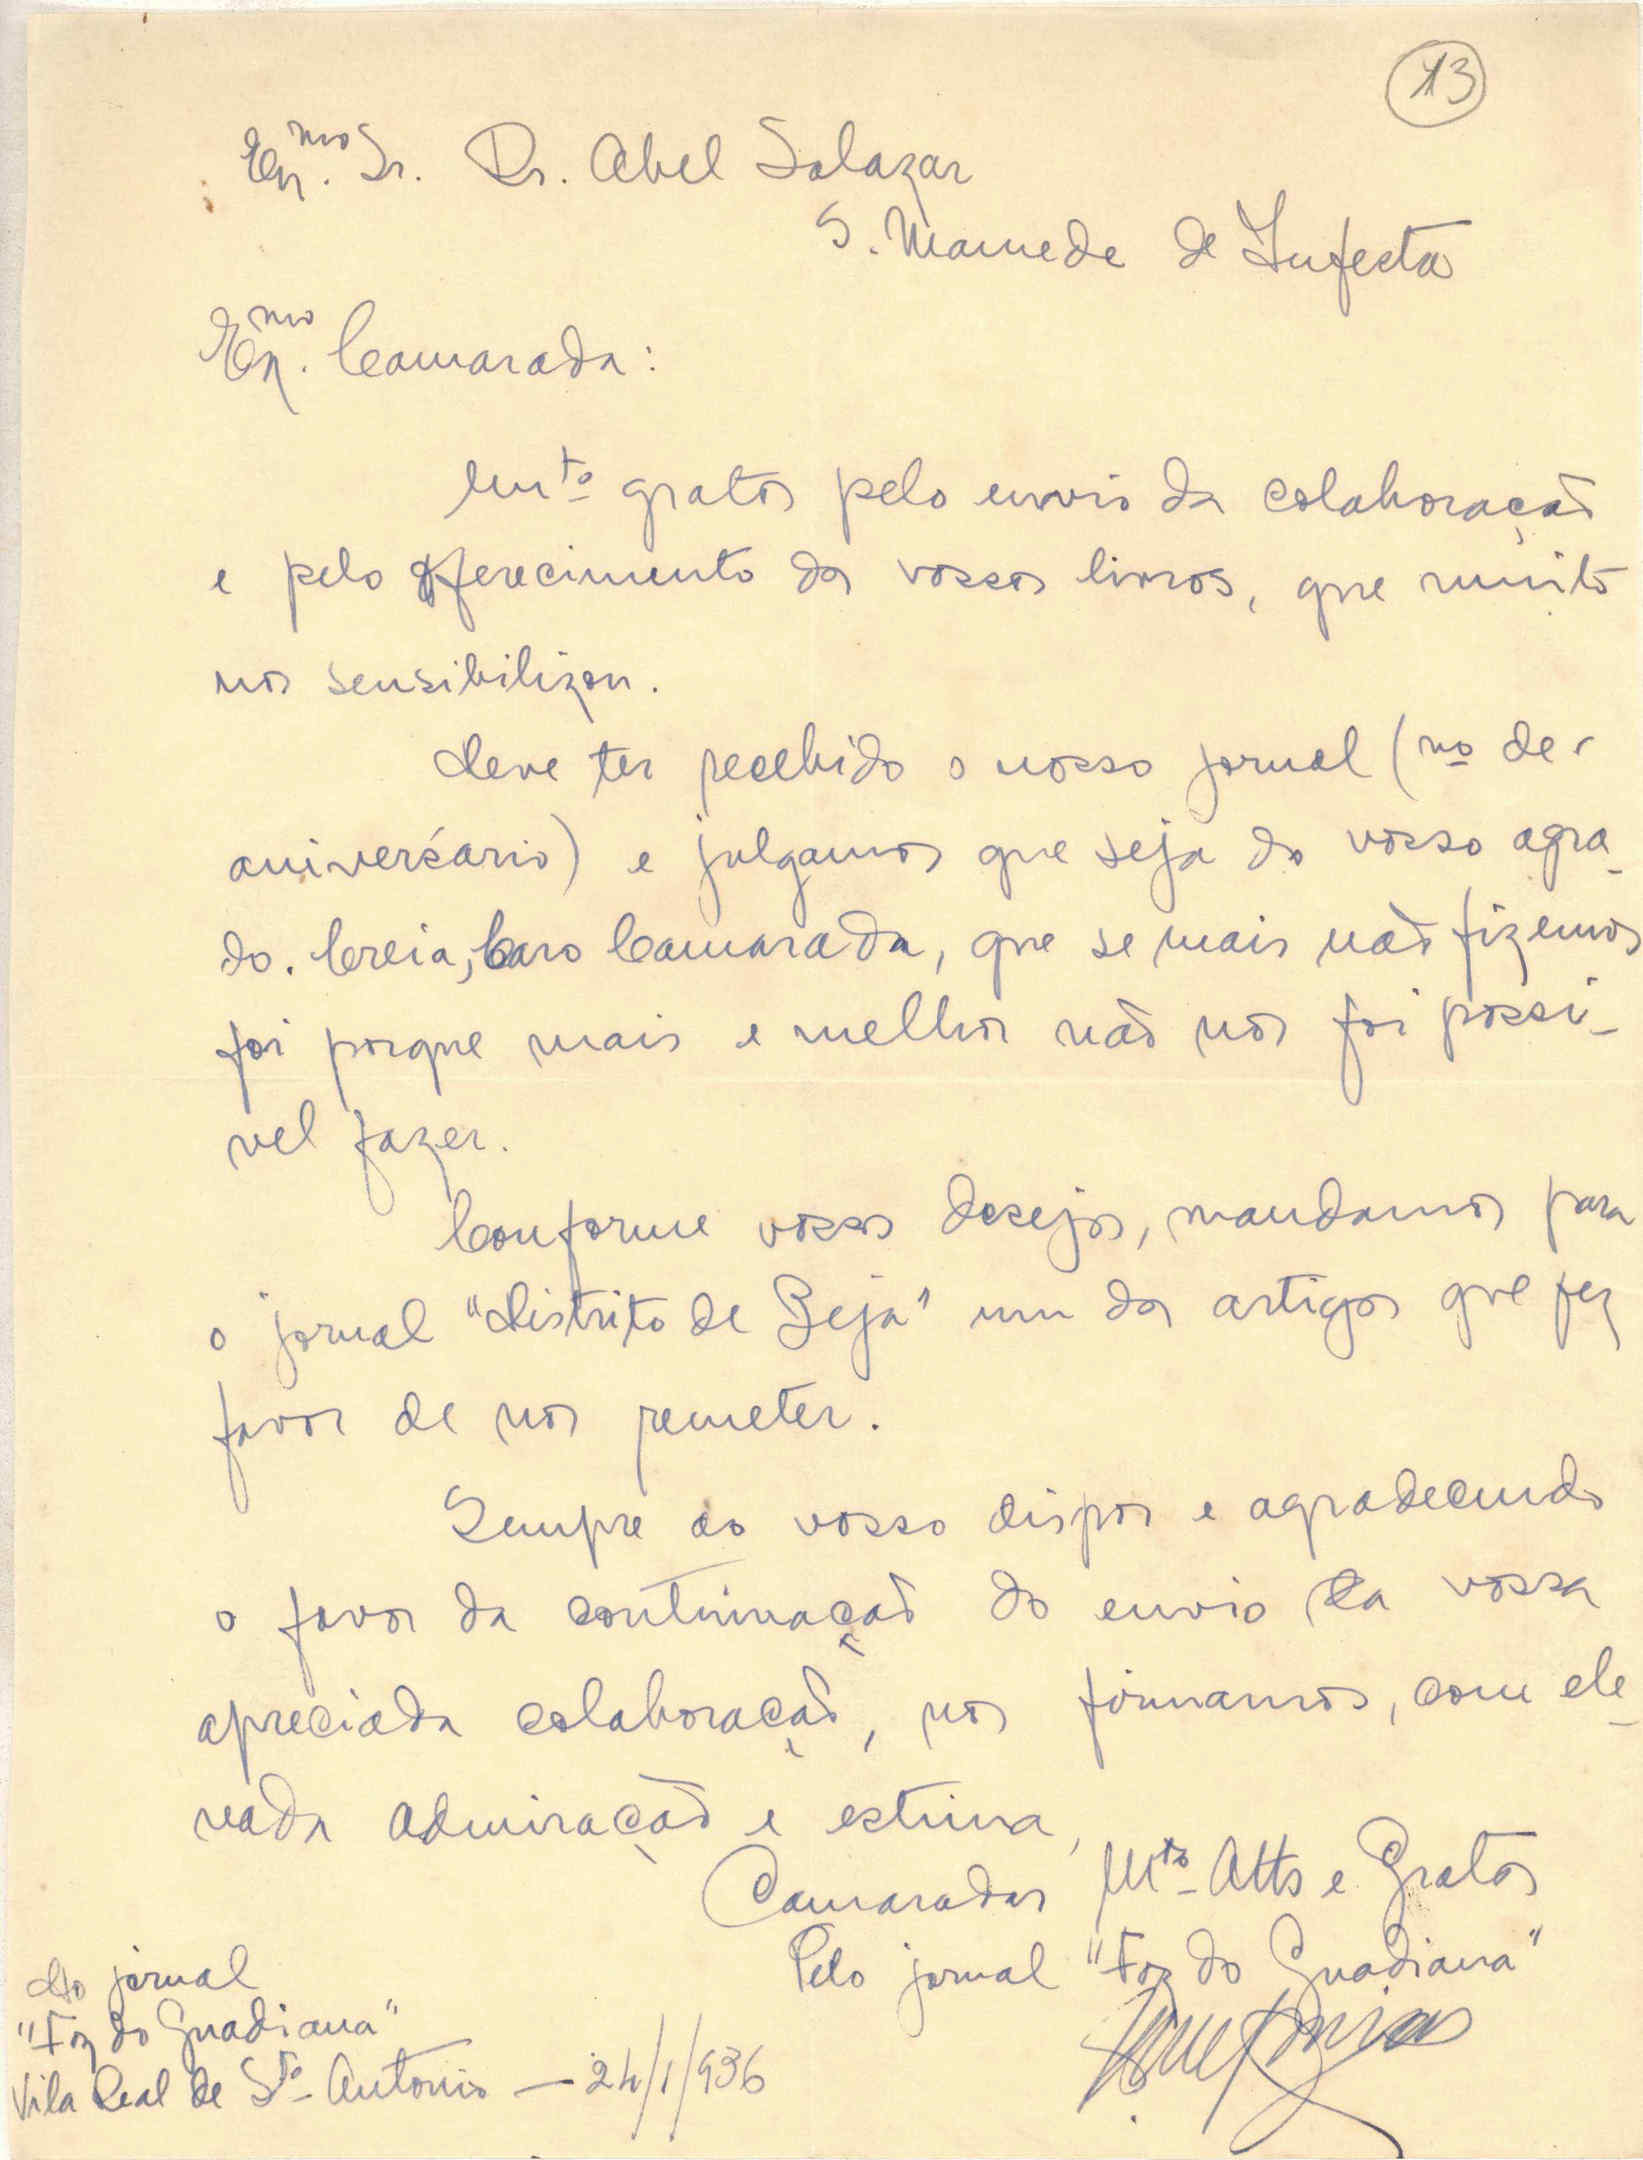 13
Ex.mo Sr. Dr. Abel Salazar
S. Mamede de Infesta
Ex.mo Camarada:
Mto gratos pelo envio da colaboração
e pelo oferecimento dos vossos livros, que muito
nos sensibilizou.
Deve ter recebido o nosso jornal (no de
aniversário) e julgamos que seja do vosso agra-
do. Creia, Caro Camarada, que se mais não fizemos
foi porque mais e melhor não nos foi possi-
vel fazer.
Conforme vossos desejos, mandamos para
o jornal "Distrito de Beja" um dos artigos que fez
favor de nos remeter.
Sempre ao vosso dispor e agradecendo
o favor da continuação do envio da vossa
apreciada colaboração, nos firmamos, com ele-
vada admiração e estima,
Camaradas Mto Atts e Gratos
Pelo jornal "Foz do Guadiana"
Do jornal
"Foz do Guadiana"
Vila Real de Sto Antonio — 24/1/936